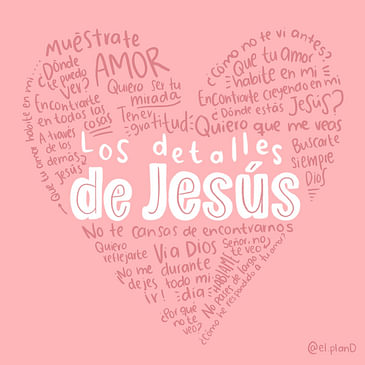 Muéstrate
AMOR
¿Dónde
te puedo
ver?
Quiero ser tu
mirada
Encontrarte
en todas las
cosas
Tener
gratitud
A través
de los
demás
Jesús
Que tu amor habite en mi
¿Cómo no te vi antes?
Que tu amor
habite en mi
Encontrarte creyendo en mi
¿Dónde estás Jesús?
Quiero que me veas
Buscarte
siempre
Dios
Los detalles
de Jesús
No te cansas de encontrarnos
Quiero
reflejarte
Vi a DIOS
Señor, no
te veo
No me
dejes
durante
todo mi
día
HÁBLAME
No pases de largo
Ir!
¿Por qué
no te
veo?
¿Cómo he respondido a tu amor?
@el.planD